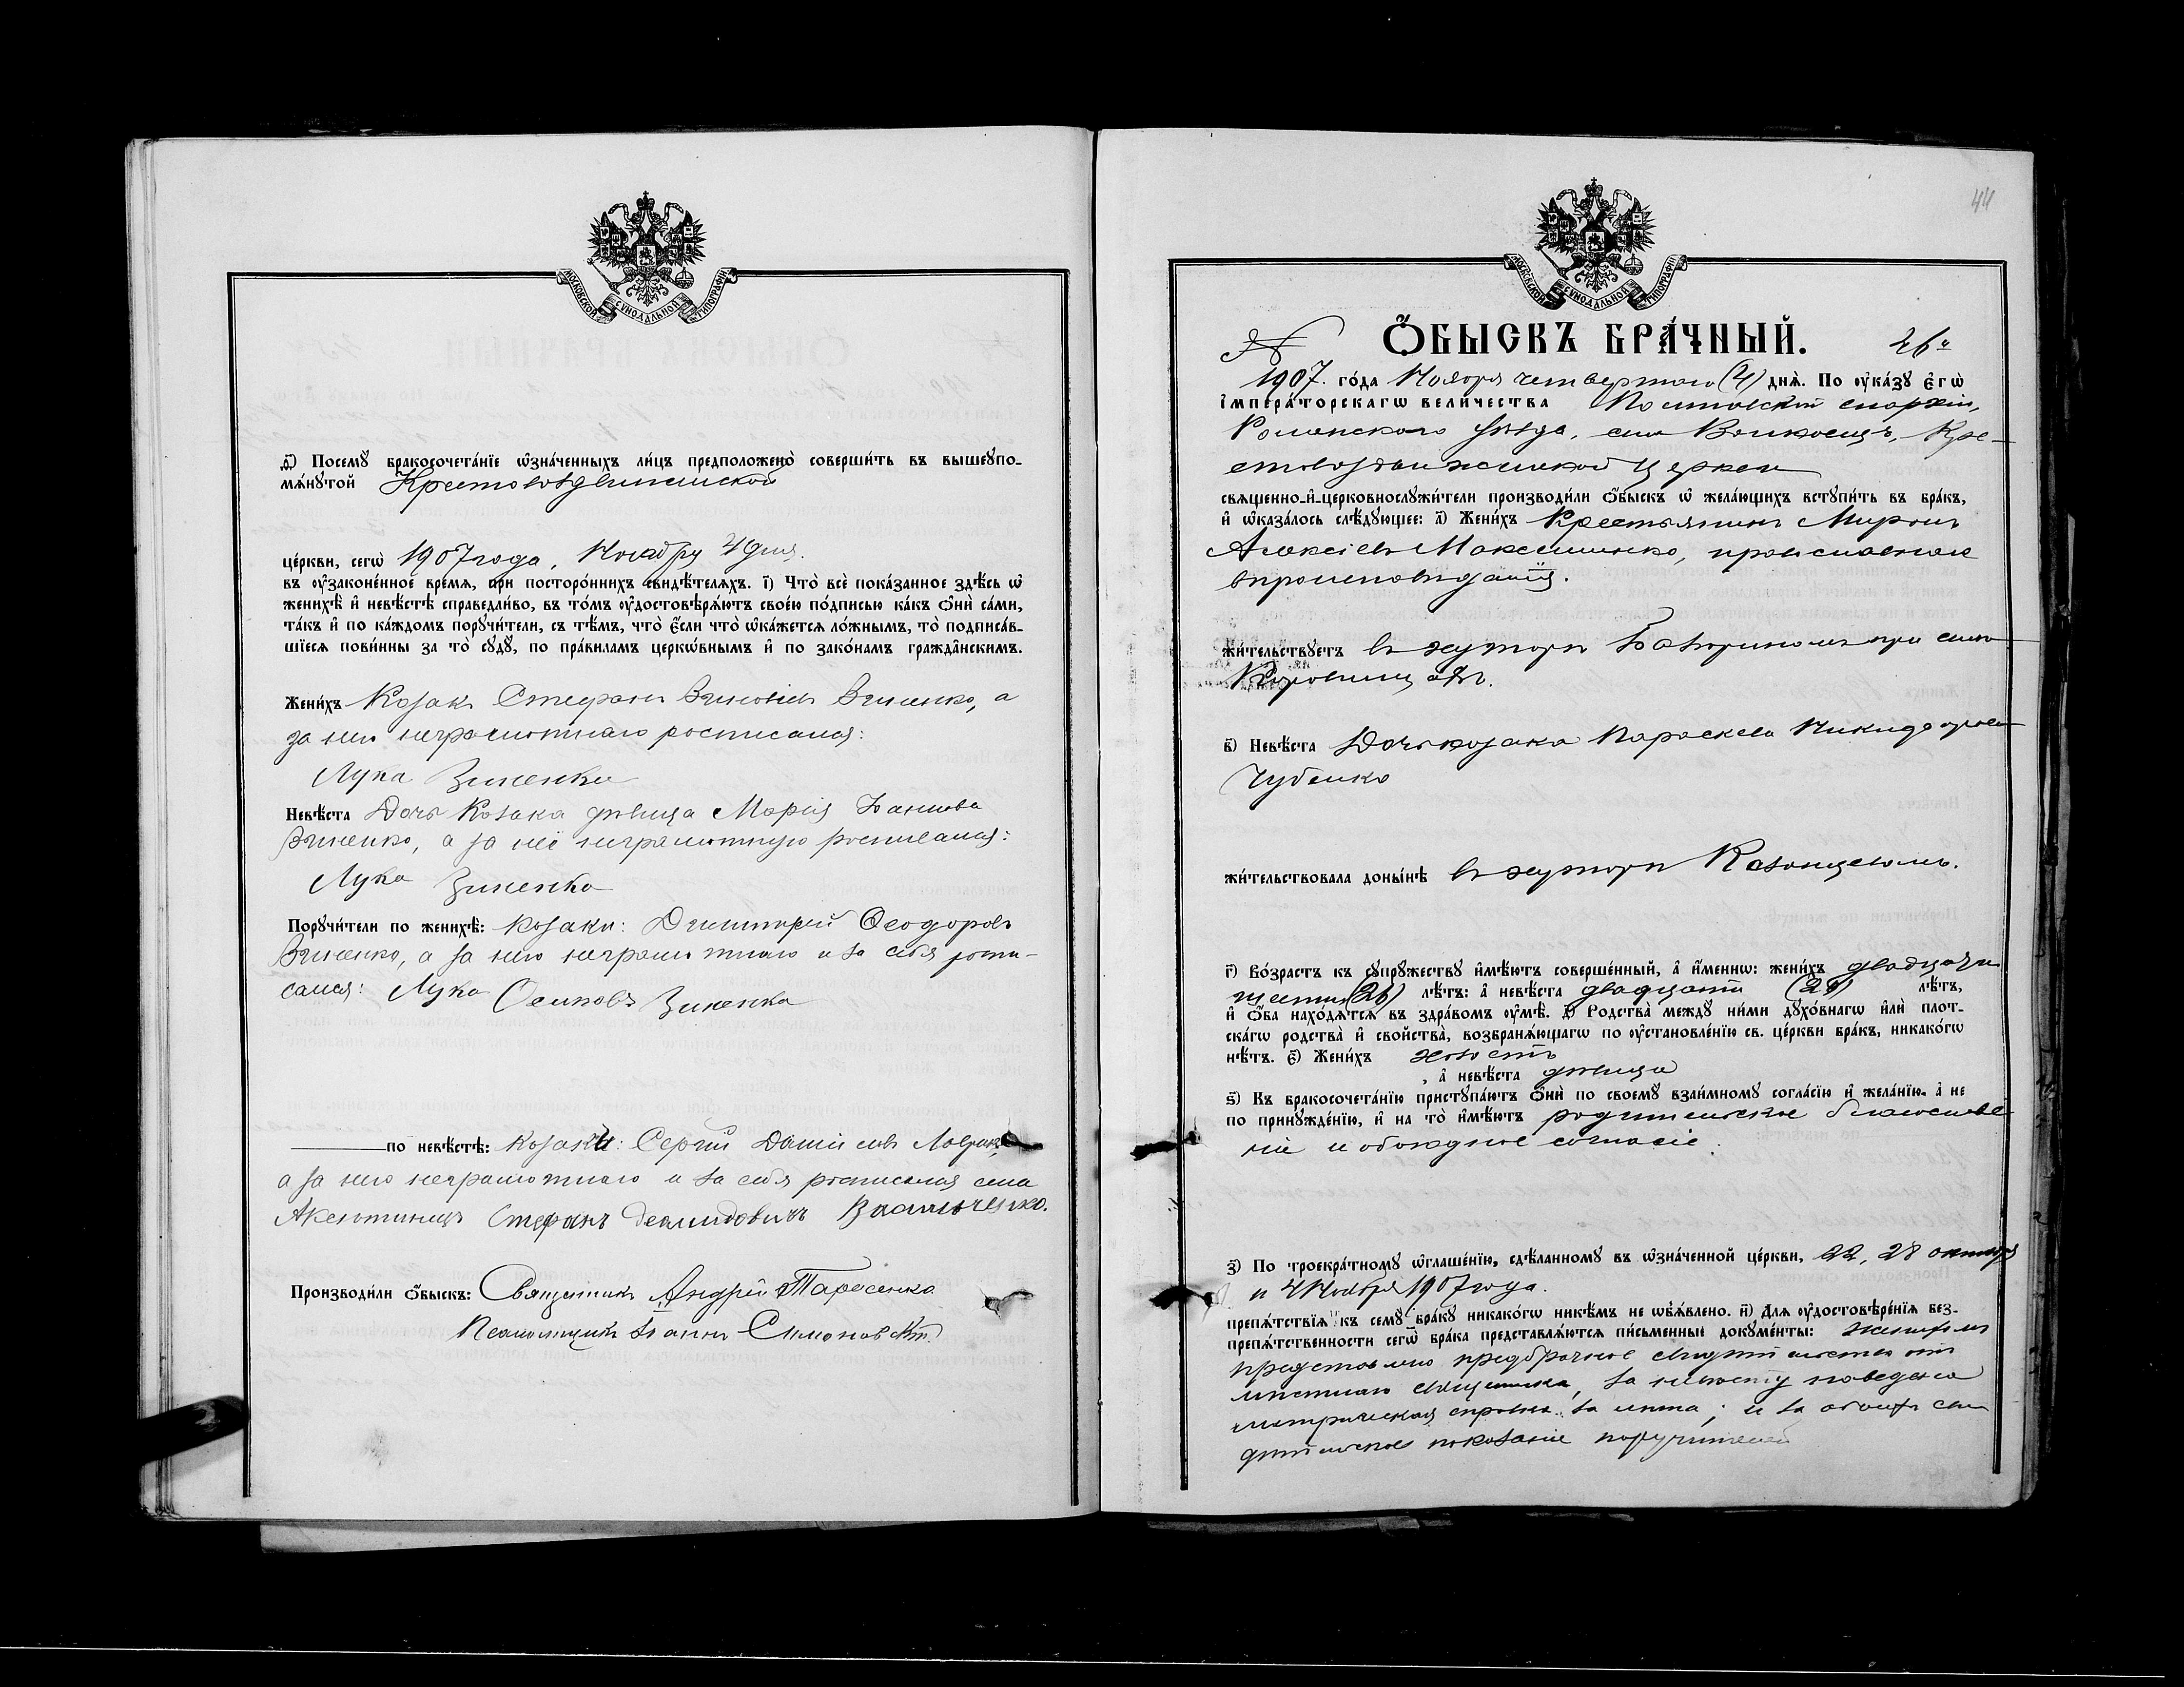 МОСКОВСКОЙ СѴНОДАЛЬНОЙ ТИПОГРАФІИ
Посемꙋ̀ бракосочета́нїе ѡ҆зна́ченныхъ ли́цъ предположено̀ соверши́ть въ вышеꙋпо-
мѧ́нꙋтой Крестовоздвиженской
це́ркви, сегѡ̀ 1907 года, Ноября 4 дня.
въ ᲂу҆зако́ненное вре́мѧ, при посторо́ннихъ свидѣ́телѧхъ. і҃) Что̀ всѐ пока́занное здѣ́сь ѡ҆
женихѣ̀ и҆ невѣ́стѣ справедли́во, въ то́мъ ᲂу҆достовѣрѧ́ютъ свое́ю по́дписью ка́къ ѻ҆нѝ са́ми,
та́къ и҆ по ка́ждомъ порꙋчи́тели, съ тѣ́мъ, что̀ є҆́сли что̀ ѡ҆ка́жетсѧ ло́жнымъ, то̀ подписа́в-
шїесѧ пови́нны за то̀ сꙋдꙋ̀, по пра́виламъ церкѡ́внымъ и҆ по зако́намъ гражда̂нскимъ.
Жени́хъ Козакъ Стефанъ Зиненко, а
за него неграмотнаго росписался:
Лука Зиненко
Невѣ́ста Дочь Козака дѣвица Марія Іоаннова
Зиненко, а за неё неграмотную росписался:
Лука Зиненко
Порꙋчи́тели по женихѣ̀: Козаки: Димитрій Ѳеодоровъ
Зиненко, а за него неграмотнаго и за себя роспи-
сался: Лука Осиповъ Зиненко
по невѣ́стѣ: Козаки: Сергій
а за него неграмотнаго и за себя росписался села
Аксютинецъ Стефанъ Демидовичъ
Производи́ли ѻ҆́быскъ: Священникъ Андрей Тарасенко
Псаломщикъ Іоаннъ Симоновскій
44
МОСКОВСКОЙ СѴНОДАЛЬНОЙ ТИПОГРАФІИ
№ Ѻ҆́БЫСКЪ БРА́ЧНЫЙ. 26й
1907. го́да Ноября четвертаго (4) днѧ̀. По ᲂу҆ка́зꙋ є҆гѡ̀
і҆мпера́торскагѡ вели́чества Полтавской епархіи,
Роменскаго уѣзда, села Волковецъ, Кре-
стовоздвиженской церкви
свѧще́нно-и҆-церковнослꙋжи́тели производи́ли ѻ҆́быскъ ѡ҆ жела́ющихъ встꙋпи́ть въ бра́къ,
и҆ ѡ҆каза́лось слѣ́дꙋющее: а҃) Жени́хъ Крестьянинъ Миронъ
Алексіевъ Максименко, православнаго
вѣроисповѣданія.
жи́тельствꙋетъ въ хуторѣ при селѣ
в҃) Невѣ́ста Дочь козака Параскева Никифорова
Чубенко
жи́тельствовала доны́нѣ въ хуторѣ
г҃) Во́зрастъ къ сꙋпрꙋ́жествꙋ и҆мѣ́ютъ соверше́нный, а҆ и҆́меннѡ: жени́хъ двадцати
шести (26) лѣ́тъ: а҆ невѣ́ста двадцати лѣ́тъ,
и҆ ѻ҆́ба нахо́дѧтсѧ въ здра́вомъ ᲂу҆мѣ̀. д҃) Родства̀ междꙋ ни́ми дꙋхо́внагѡ и҆лѝ плот-
ска́гѡ родства̀ и҆ сво́йства̀, возбранѧ́ющагѡ по ᲂу҆становле́нїю св. це́ркви бра́къ, никако́гѡ
нѣ́тъ. є҃) Жени́хъ холостъ
, а҆ невѣ́ста дѣвица
ѕ҃) Къ бракосочета́нїю пристꙋпа́ютъ ѻ҆нѝ по своемꙋ̀ взаи́мномꙋ согла́сїю и҆ жела́нїю, а҆ не
по принꙋжде́нїю, и҆ на то̀ и҆мѣ́ютъ родительское благослове-
ніе и обоюдное согласіе.
з҃) По троекра́тномꙋ ѡ҆глаше́нїю, сдѣ́ланномꙋ въ ѡ҆зна́ченной це́ркви, 22, 28 октября
и 4 Ноября 1907 года.
препѧ́тствїѧ къ семꙋ̀ бра́кꙋ никако́гѡ никѣ́мъ не ѡ҆бъѧ́влено. и҃) Длѧ ᲂу҆достовѣре́нїѧ без-
препѧ́тственности сегѡ̀ бра́ка представлѧ́ютсѧ пи́сьменные докꙋме́нты: женихомъ
представлено предбрачное свидѣтельство отъ
мѣстнаго священника, за невѣсту поведена
метрическая справка за лѣта; и за обоихъ сви
дѣтельское показаніе поручителей